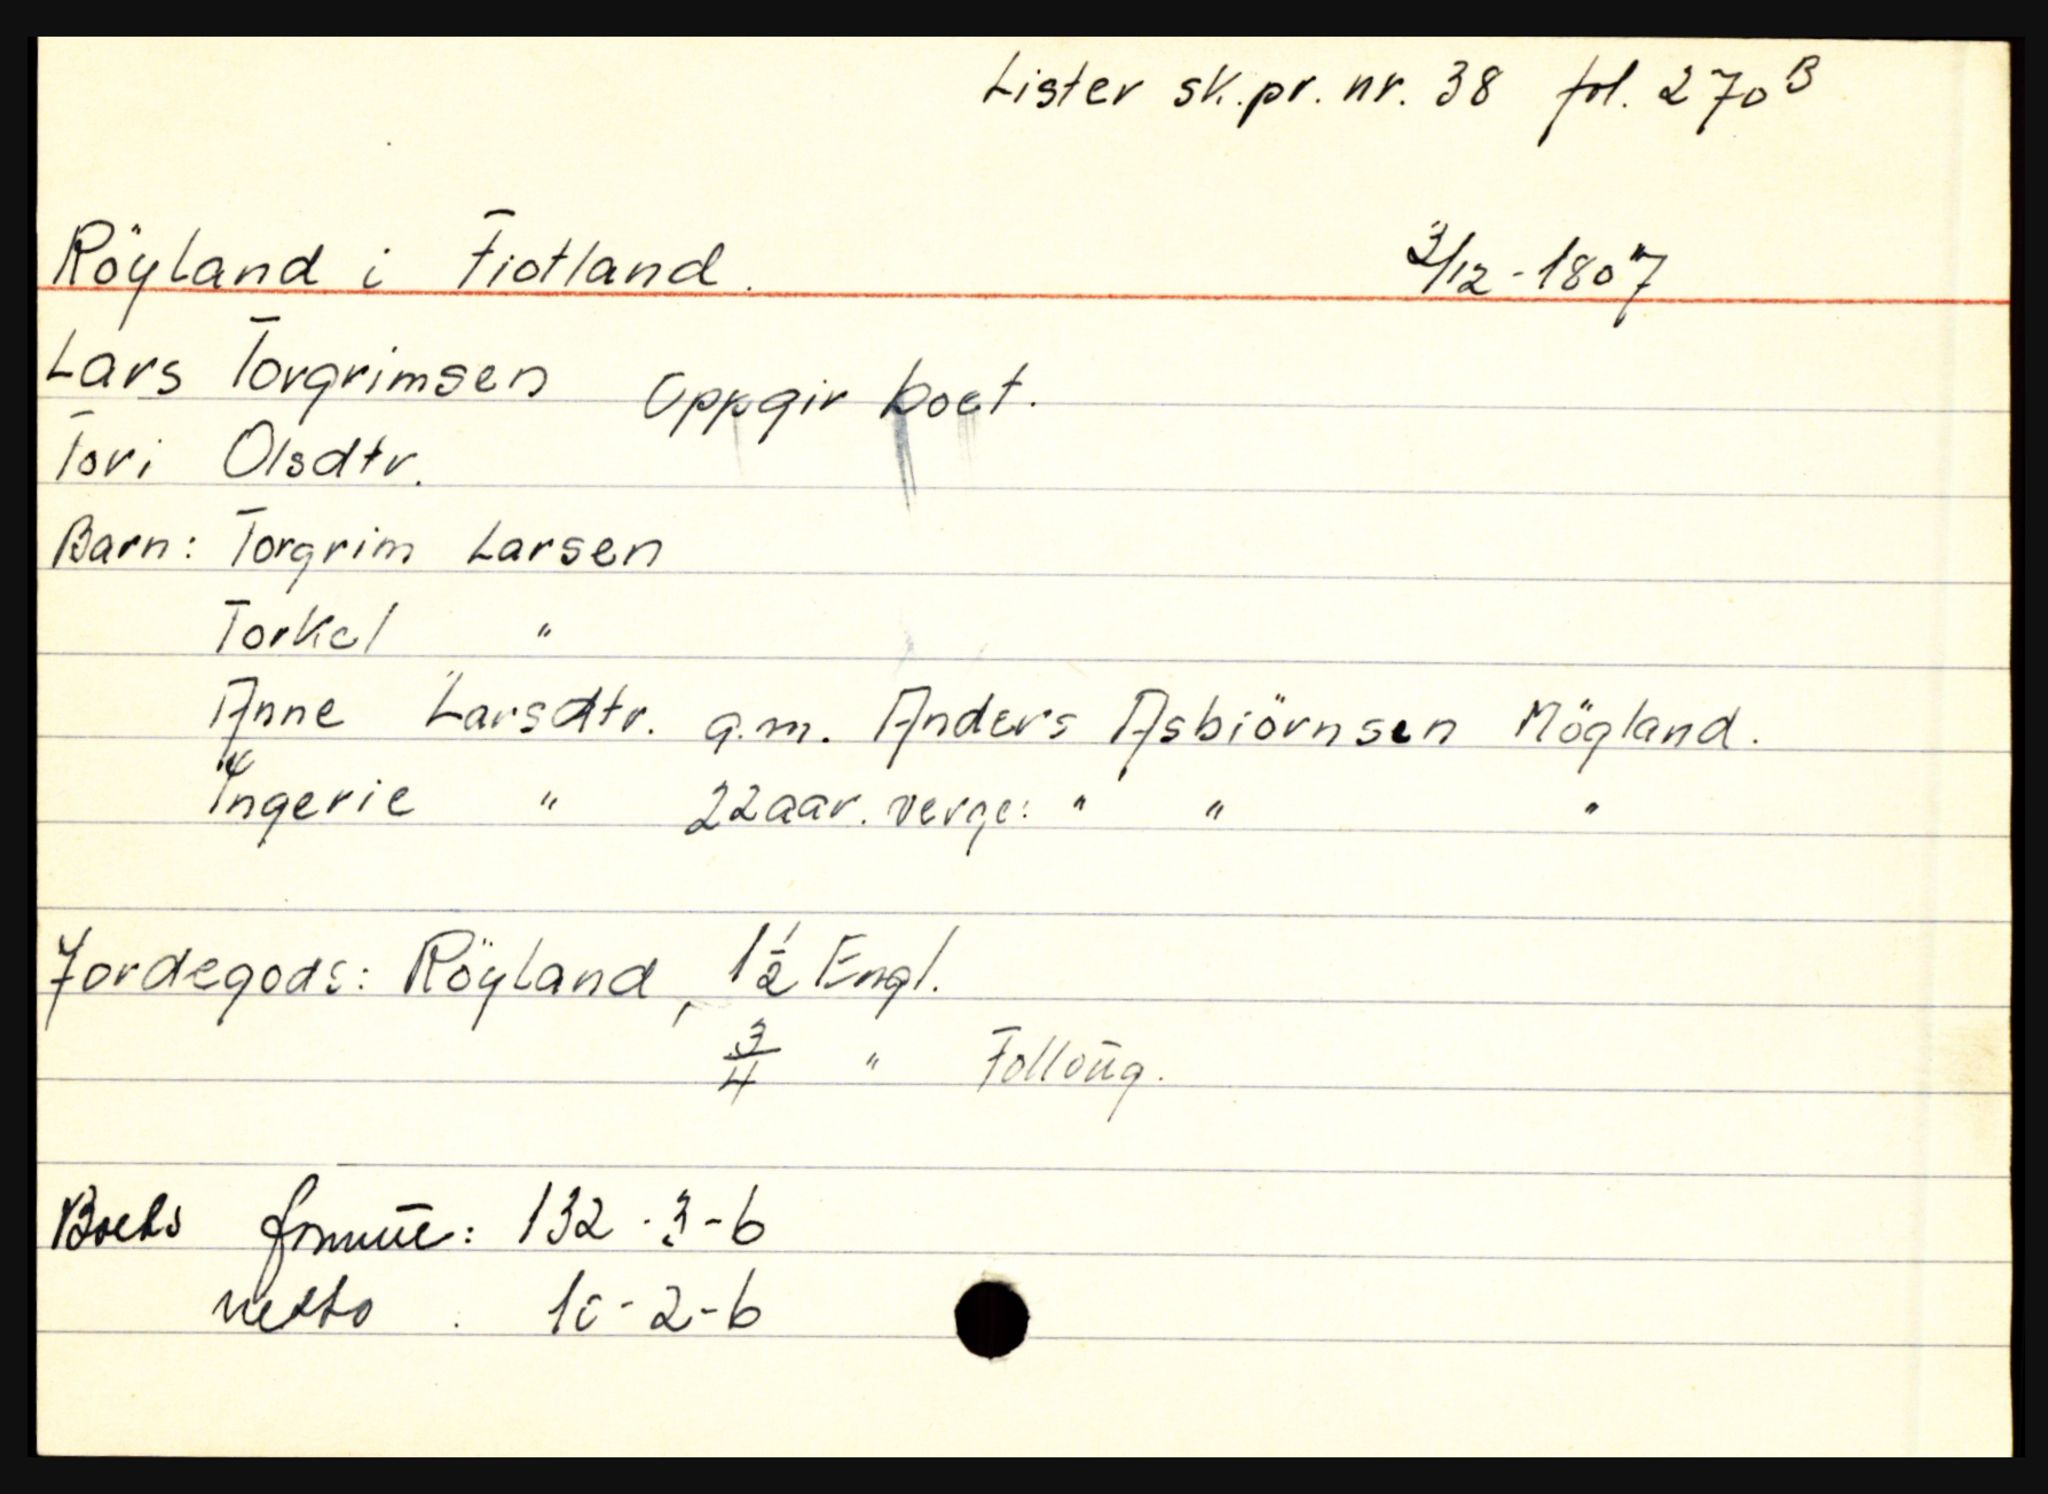 Lister sk.pr. nr. 38 fol. 270 B
Röyland i Fiotland. 3/12-1807
Lars Torgrimsen Oppgir boet.
Tori Olsdtr.
Barn: Torgrim Larsen
Torkel "
Anne Larsdtr. g.m. Anders Asbiörnsen Mögland.
Ingerie " 22 aar. verge: " " "
Jordegods: Röyland, 1 1/2 Engl.
3/4 " Follöug.
Boets formue: 132-3-6
netto 10-2-6